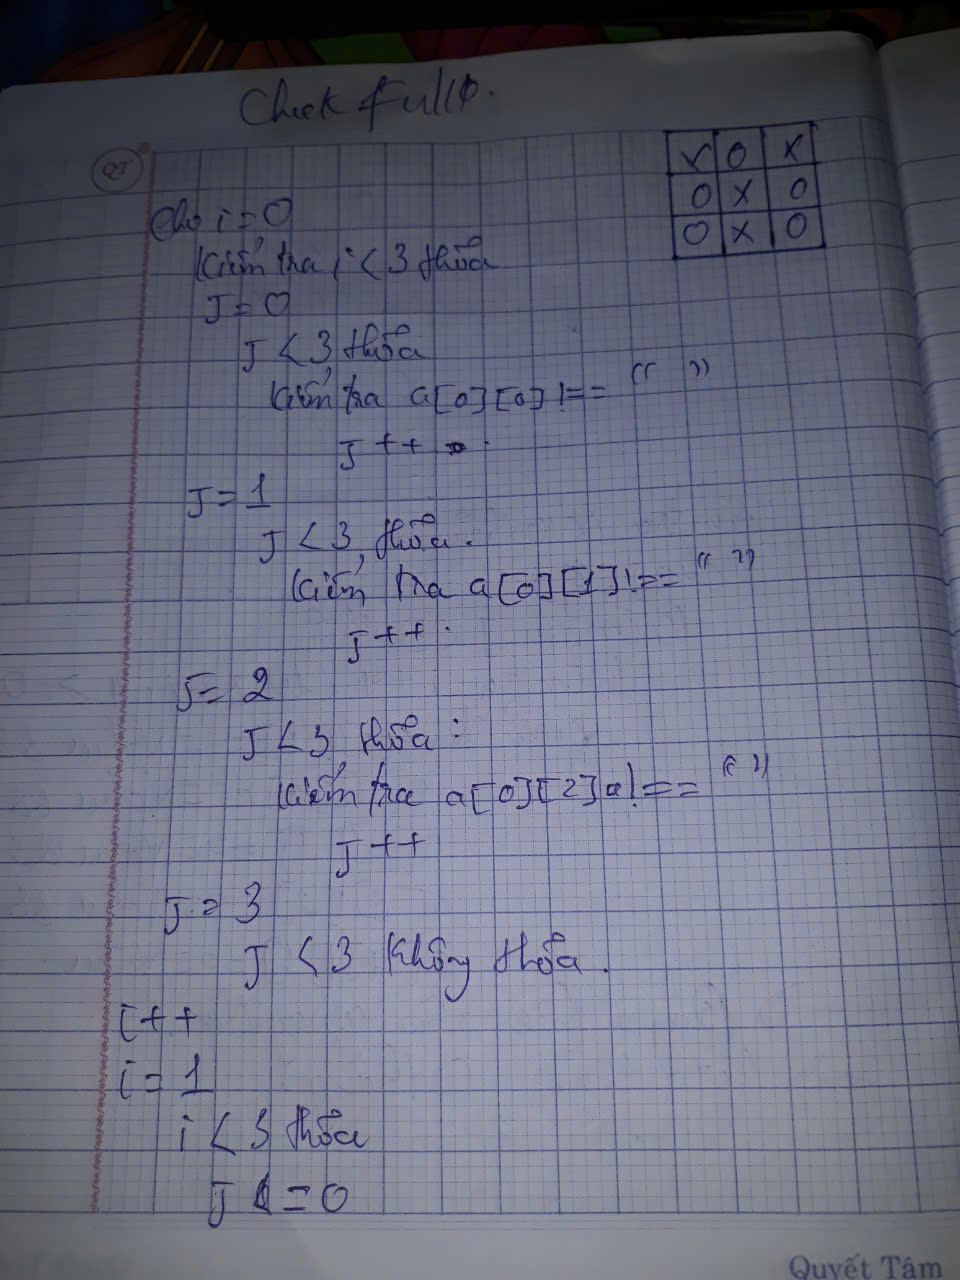 Check Full().
X O X
O X O
O X O
Cho i = 0
Kiểm tra i < 3 thỏa
J = 0
J < 3 thỏa
Kiểm tra a[0][0] !== " "
J++
J = 1
J < 3 thỏa.
Kiểm tra a[0][1] !== " "
J++.
J = 2
J < 3 thỏa :
Kiểm tra a[0][2] !== " "
J++
J = 3
J < 3 Không thỏa.
i++
i = 1
i < 3 thỏa
J = 0
Quyết Tâm